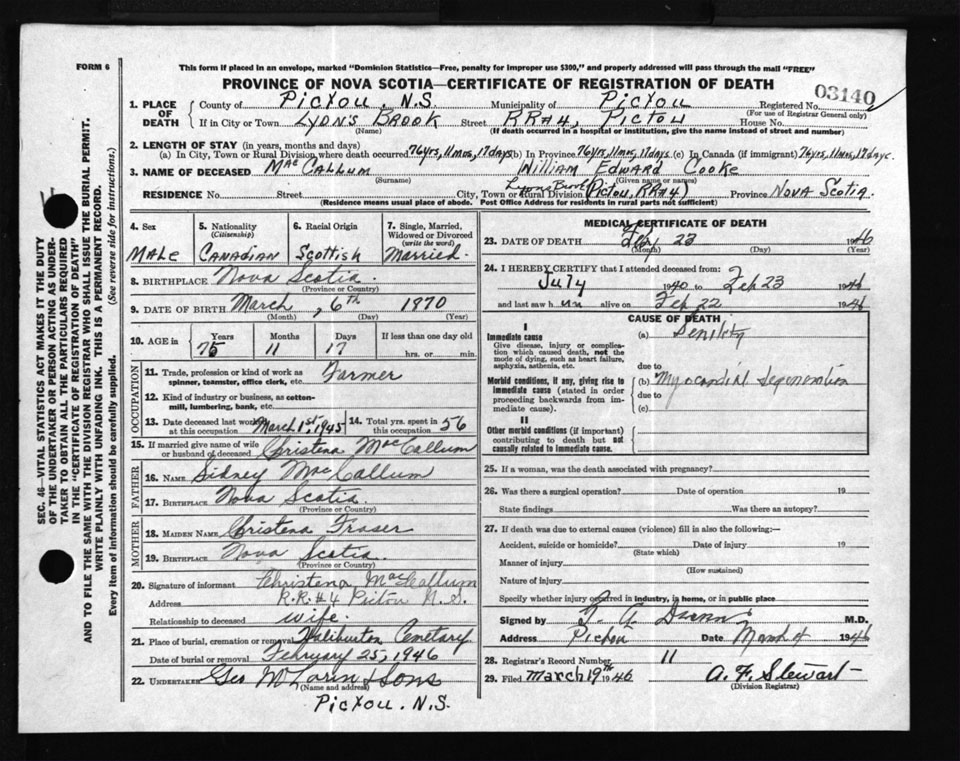 FORM 6
This form if placed in an envelope, marked "Dominion Statistics—Free, penalty for improper use $300," and properly addressed will pass through the mail "FREE"
PROVINCE OF NOVA SCOTIA—CERTIFICATE OF REGISTRATION OF DEATH
03140
1. PLACE OF DEATH County of Pictou. N.S. Municipality of Pictou Registered No.
(For use of Registrar General only)
If in City or Town Lyons Brook Street RR#4, Pictou House No.
(Name) (If death occurred in a hospital or institution, give the name instead of street and number)
2. LENGTH OF STAY (in years, months and days)
(a) In City, Town or Rural Division where death occurred 76yrs, 11mos, 17days (b) In Province 76yrs, 11mos, 17days (c) In Canada (if immigrant) 76yrs, 11mos, 17days.
3. NAME OF DECEASED MacCallum William Edward Cooke
(Surname) (Given name or names)
RESIDENCE No. Street City, Town or Rural Division Lyons Brook (Pictou, RR#4) Province Nova Scotia.
(Residence means usual place of abode. Post Office Address for residents in rural parts not sufficient)
4. Sex Male
5. Nationality (Citizenship) Canadian
6. Racial Origin Scottish
7. Single, Married, Widowed or Divorced (write the word) Married.
8. BIRTHPLACE Nova Scotia.
(Province or Country)
9. DATE OF BIRTH March, 6th 1870
(Month) (Day) (Year)
10. AGE in Years Months Days If less than one day old
75 11 17 hrs. or min.
OCCUPATION
11. Trade, profession or kind of work as spinner, teamster, office clerk, etc. Farmer
12. Kind of industry or business, as cotten-mill, lumbering, bank, etc.
13. Date deceased last worked at this occupation March 1st, 1945
14. Total yrs. spent in this occupation 56
15. If married give name of wife or husband of deceased Christena MacCallum
FATHER
16. NAME Sidney MacCallum
17. BIRTHPLACE Nova Scotia.
(Province or Country)
MOTHER
18. MAIDEN NAME Christena Fraser
19. BIRTHPLACE Nova Scotia.
(Province or Country)
20. Signature of informant Christena MacCallum
Address R.R.#4 Pictou N.S.
Relationship to deceased wife.
21. Place of burial, cremation or removal Haliburton Cemetary
Date of burial or removal February 25, 1946
22. UNDERTAKER Geo McLarin & Sons
(Name and address)
Pictou. N.S.
MEDICAL CERTIFICATE OF DEATH
23. DATE OF DEATH Feby 23 1946
(Month) (Day) (Year)
24. I HEREBY CERTIFY that I attended deceased from:
July 1940 to Feb 23 1946
and last saw him alive on Feb 22 1946
CAUSE OF DEATH
I
Immediate cause (a) Senility
Give disease, injury or complication which caused death, not the mode of dying, such as heart failure, asphyxia, asthenia, etc.
due to
Morbid conditions, if any, giving rise to immediate cause (stated in order proceeding backwards from immediate cause).
(b) Myocardial Degeneration
due to
(c)
II
Other morbid conditions (if important) contributing to death but not causally related to immediate cause.
25. If a woman, was the death associated with pregnancy?
26. Was there a surgical operation? Date of operation 19
State findings Was there an autopsy?
27. If death was due to external causes (violence) fill in also the following:—
Accident, suicide or homicide? Date of injury 19
(State which)
Manner of injury
(How sustained)
Nature of injury
Specify whether injury occurred in industry, in home, or in public place
Signed by M.D.
Address Pictou Date March 4 1946
28. Registrar's Record Number 11
29. Filed March 19th 1946 A. F. Stewart
(Division Registrar)
SEC. 46—VITAL STATISTICS ACT MAKES IT THE DUTY
OF THE UNDERTAKER OR PERSON ACTING AS UNDERTAKER TO OBTAIN ALL THE PARTICULARS REQUIRED
IN THE "CERTIFICATE OF REGISTRATION OF DEATH"
AND TO FILE THE SAME WITH THE DIVISION REGISTRAR WHO SHALL ISSUE THE BURIAL PERMIT.
WRITE PLAINLY WITH UNFADING INK. THIS IS A PERMANENT RECORD.
Every item of information should be carefully supplied. (See reverse side for instructions.)